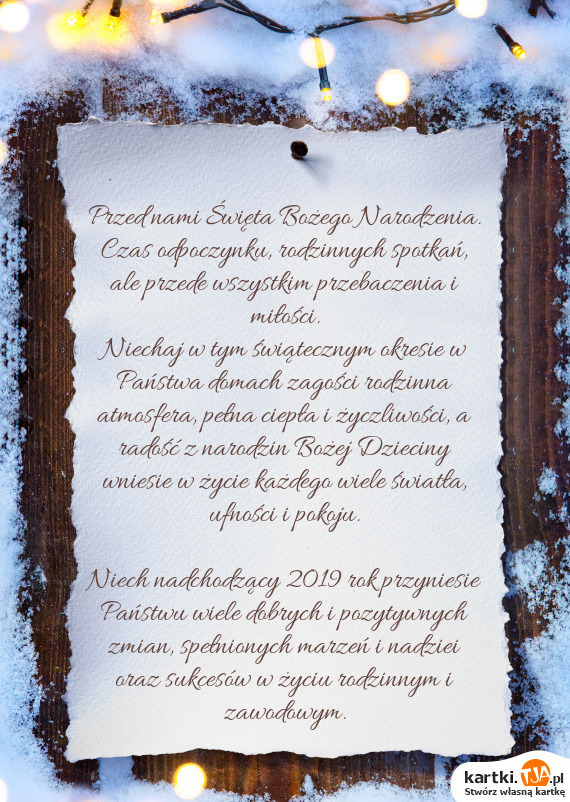 Przed nami Święta Bożego Narodzenia.
Czas odpoczynku, rodzinnych spotkań,
ale przede wszystkim przebaczenia i
miłości.
Niechaj w tym świątecznym okresie w
Państwa domach zagości rodzinna
atmosfera, pełna ciepła i życzliwości, a
radość z narodzin Bożej Dzieciny
wniesie w życie każdego wiele światła,
ufności i pokoju.
Niech nadchodzący 2019 rok przyniesie
Państwu wiele dobrych i pozytywnych
zmian, spełnionych marzeń i nadziei
oraz sukcesów w życiu rodzinnym i
zawodowym.
kartki.TJA.pl
Stwórz własną kartkę